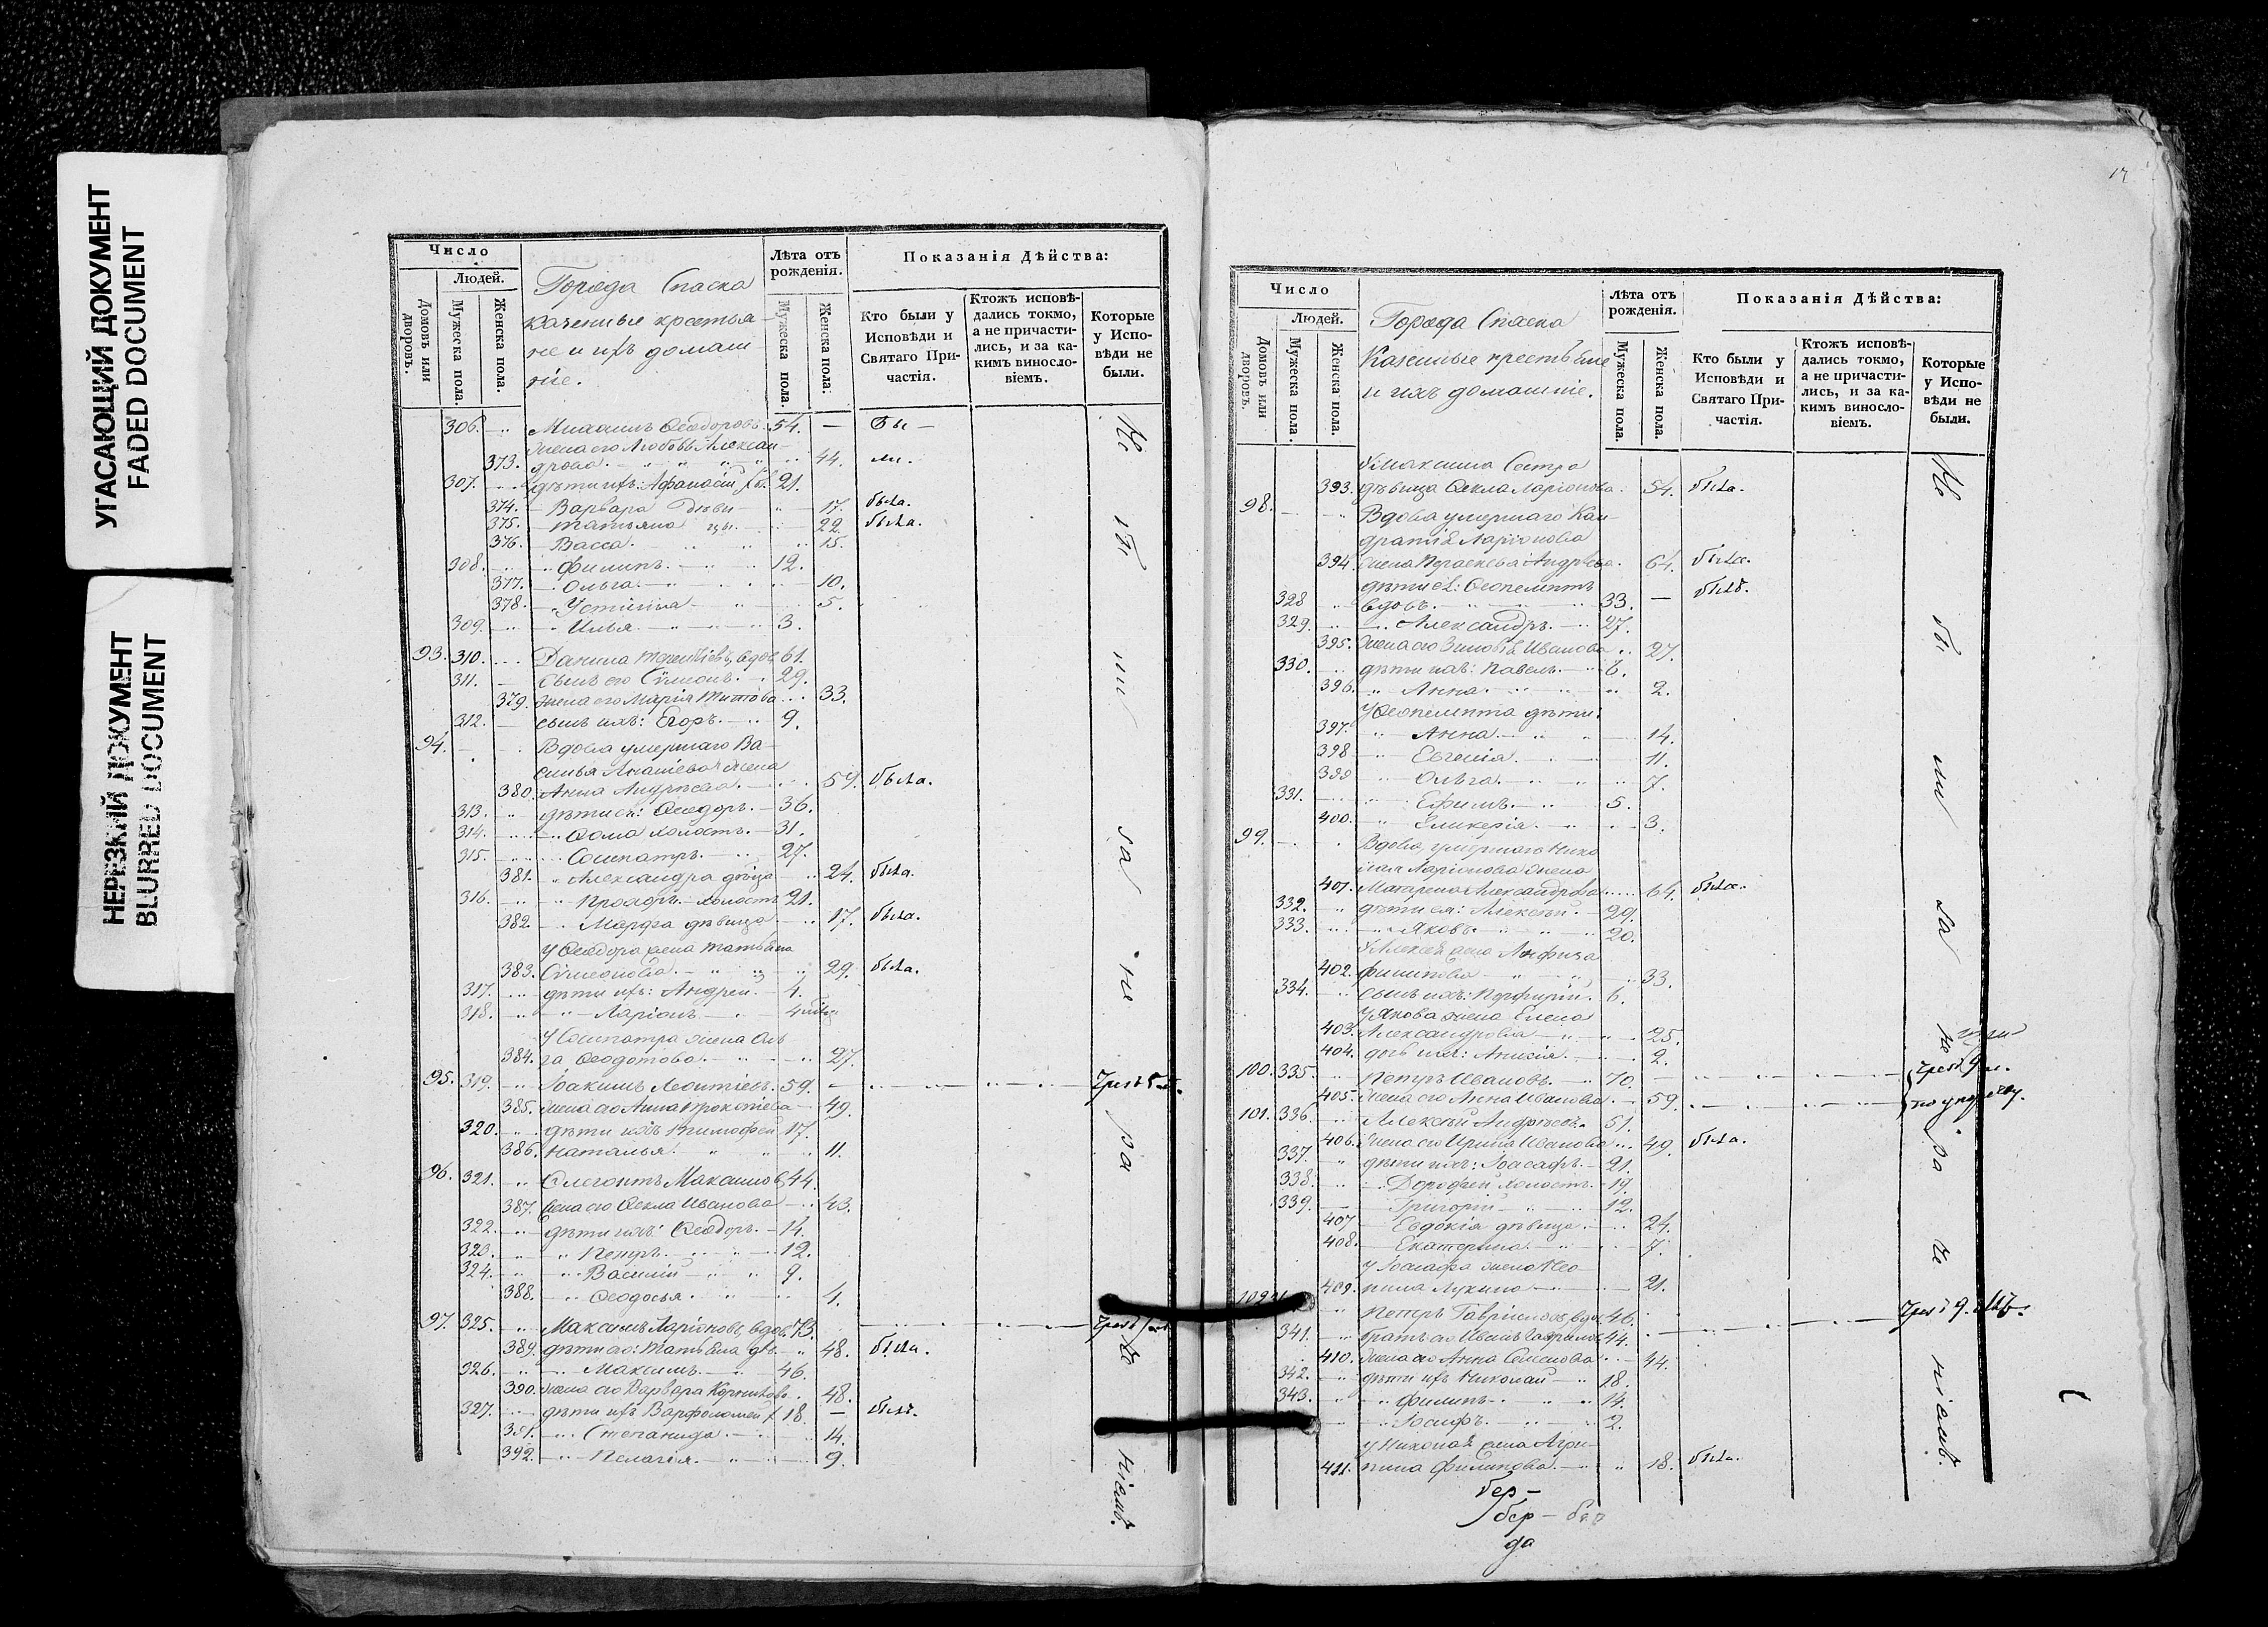 УГАСАЮЩИЙ ДОКУМЕНТ
FADED DOCUMENT
НЕРЕЗКИЙ ДОКУМЕНТ
BLURRED DOCUMENT
Число
Людей.
Домовъ или дворовъ.
Мужеска пола.
Женска пола.
Города Спаска
казенные крестья-
не и ихъ домаш-
ніе.
Лѣта отъ рожденія.
Мужеска пола.
Женска пола.
Показанія Дѣйства:
Кто были у Исповѣди и Святаго Причастія.
Ктожъ исповѣдались токмо, а не причастились, и за какимъ винословіемъ.
Которые у Исповѣди не были.
306. Михаилъ Ѳеодоровъ 54. — Бы —
жена его Любовь Алексан-
373. дрова. 44. ли.
307. дѣти ихъ: Афанасій 21.
374. — Варвара дѣви- 17. была.
375. — Татьяна цы. 22. была.
376. — Васса. 15.
308. Филипъ. 12.
377. — Ольга. 10.
378. — Устинья 5.
309. Илья 3.
93. 310. Данила Терентіевъ, вдов. 61.
311. сынъ его Сѵмеонъ. 29.
379. жена его Марія Титова 33.
312. сынъ ихъ: Егоръ. 9.
94. Вдова умершаго Ва-
силья Ананіева жена
380. Анна Андреева. 59. была.
313. дѣти ея: Ѳеодоръ. 36.
314. Ѳома холостъ. 31.
315. Сосипатръ. 27.
381. Александра дѣвца 24. была.
316. Прохоръ холостъ 21.
382. Марфа дѣвица 17. была.
У Ѳеодора жена Татьяна
383. Сѵмеонова. 29. была.
317. дѣти ихъ: Андрей. 4.
318. Ларіонъ
У Сосипатра жена Оль
384. га Ѳеодотова. 27.
95. 319. Іоакимъ Леонтіевъ. 59.
385. жена его Анна Прокопіева 49.
320. дѣти ихъ Тимофей 17.
386. Наталья. 11.
96. 321. Олегонтъ Максимовъ 44.
387. жена его Ѳекла Иванова 43.
322. дѣти ихъ: Ѳеодоръ. 14.
323. Петръ. 12.
324. Василій 9.
388. Ѳеодосья. 4.
97. 325. Максимъ Ларіоновъ, вдов. 73.
389. дѣти его: Татьяна дѣ. 48. была.
326. Максимъ. 46.
390. жена его Варвара Корнилова 48.
327. дѣти ихъ Варфоломей 18. — былъ.
391. Степанида. 14.
392. Пелагія. 9.
Не бы ли за не ра че ніемъ.
17
Число
Людей.
Домовъ или дворовъ.
Мужеска пола.
Женска пола.
Города Спаска
Казенные крестьяне
и ихъ домашніе.
Лѣта отъ рожденія.
Мужеска пола.
Женска пола.
Показанія Дѣйства:
Кто были у Исповѣди и Святаго Причастія.
Ктожъ исповѣдались токмо, а не причастились, и за какимъ винословіемъ.
Которые у Исповѣди не были.
У Максима Сестра
393. дѣвица Ѳекла Ларіонова. 54. была.
98. Вдова умершаго Кон-
дратія Ларіонова
394. жена Параскева Андреева. 64. была.
дѣти ея: Ѳеопемптъ
328 вдовъ. 33. — былъ.
329. Александръ. 27.
395. жена его Зиновія Иванова 27.
330. дѣти ихъ: Павелъ. 6.
396. Анна. 2.
У Ѳеопемпта дѣти:
397. Анна. 14.
398 Евгенія. 11.
399 Ольга. 7.
331. Ефимъ. 5.
400. Гликерія. 3.
99. Вдова, умершаго Нико
лая Ларіонова жена
401. Макарена Александрова 64. была.
332. дѣти ея: Алексѣй. 29.
333. Яковъ. 20.
У Алексѣя жена Анфиза
402. Филипова 33.
334. сынъ ихъ: Порфирій. 6.
У Якова жена Елена
403. Александрова 25.
404. дочь ихъ: Анисія. 2.
100. 335. Петръ Ивановъ. 70.
405. жена его Анна Иванова. 59.
101. 336. Алексѣй Андреевъ. 51.
406. жена его Ирина Иванова 49. была.
337. дѣти ихъ: Іоасафъ. 21.
338. Дорофей холостъ. 19.
339. Григорій 12.
407 Евдокія дѣвица. 24.
408. Екатерина. 7.
У Іоасафа жена Нео-
409. нила Лукина 21.
102. Петръ Гавриловъ, вдов. 46.
341. братъ его Иванъ Гавриловъ 44.
410. жена его Анна Семенова 44.
342. дѣти ихъ Николай 18.
343. Филипъ. 14.
Іосифъ. 2.
у Николая жена Агри-
411. пина Филипова. 18. была.
Не бы ли за не ра че ніемъ.
бер-
бер-
да